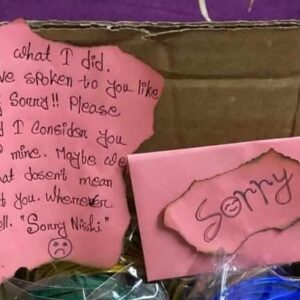 what I did.
spoken to you like
Sorry!! Please
I Consider you
mine. Maybe we
that dosen't mean
you. Wherever
"Sorry Nishi"
Sorry